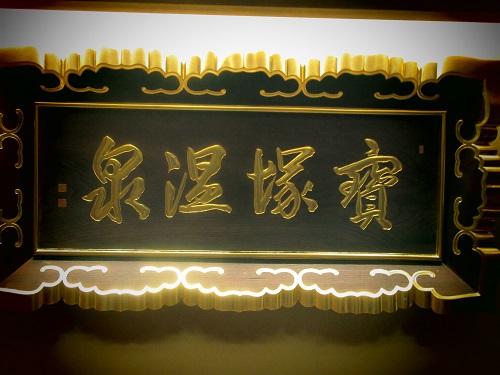 寶塚温泉